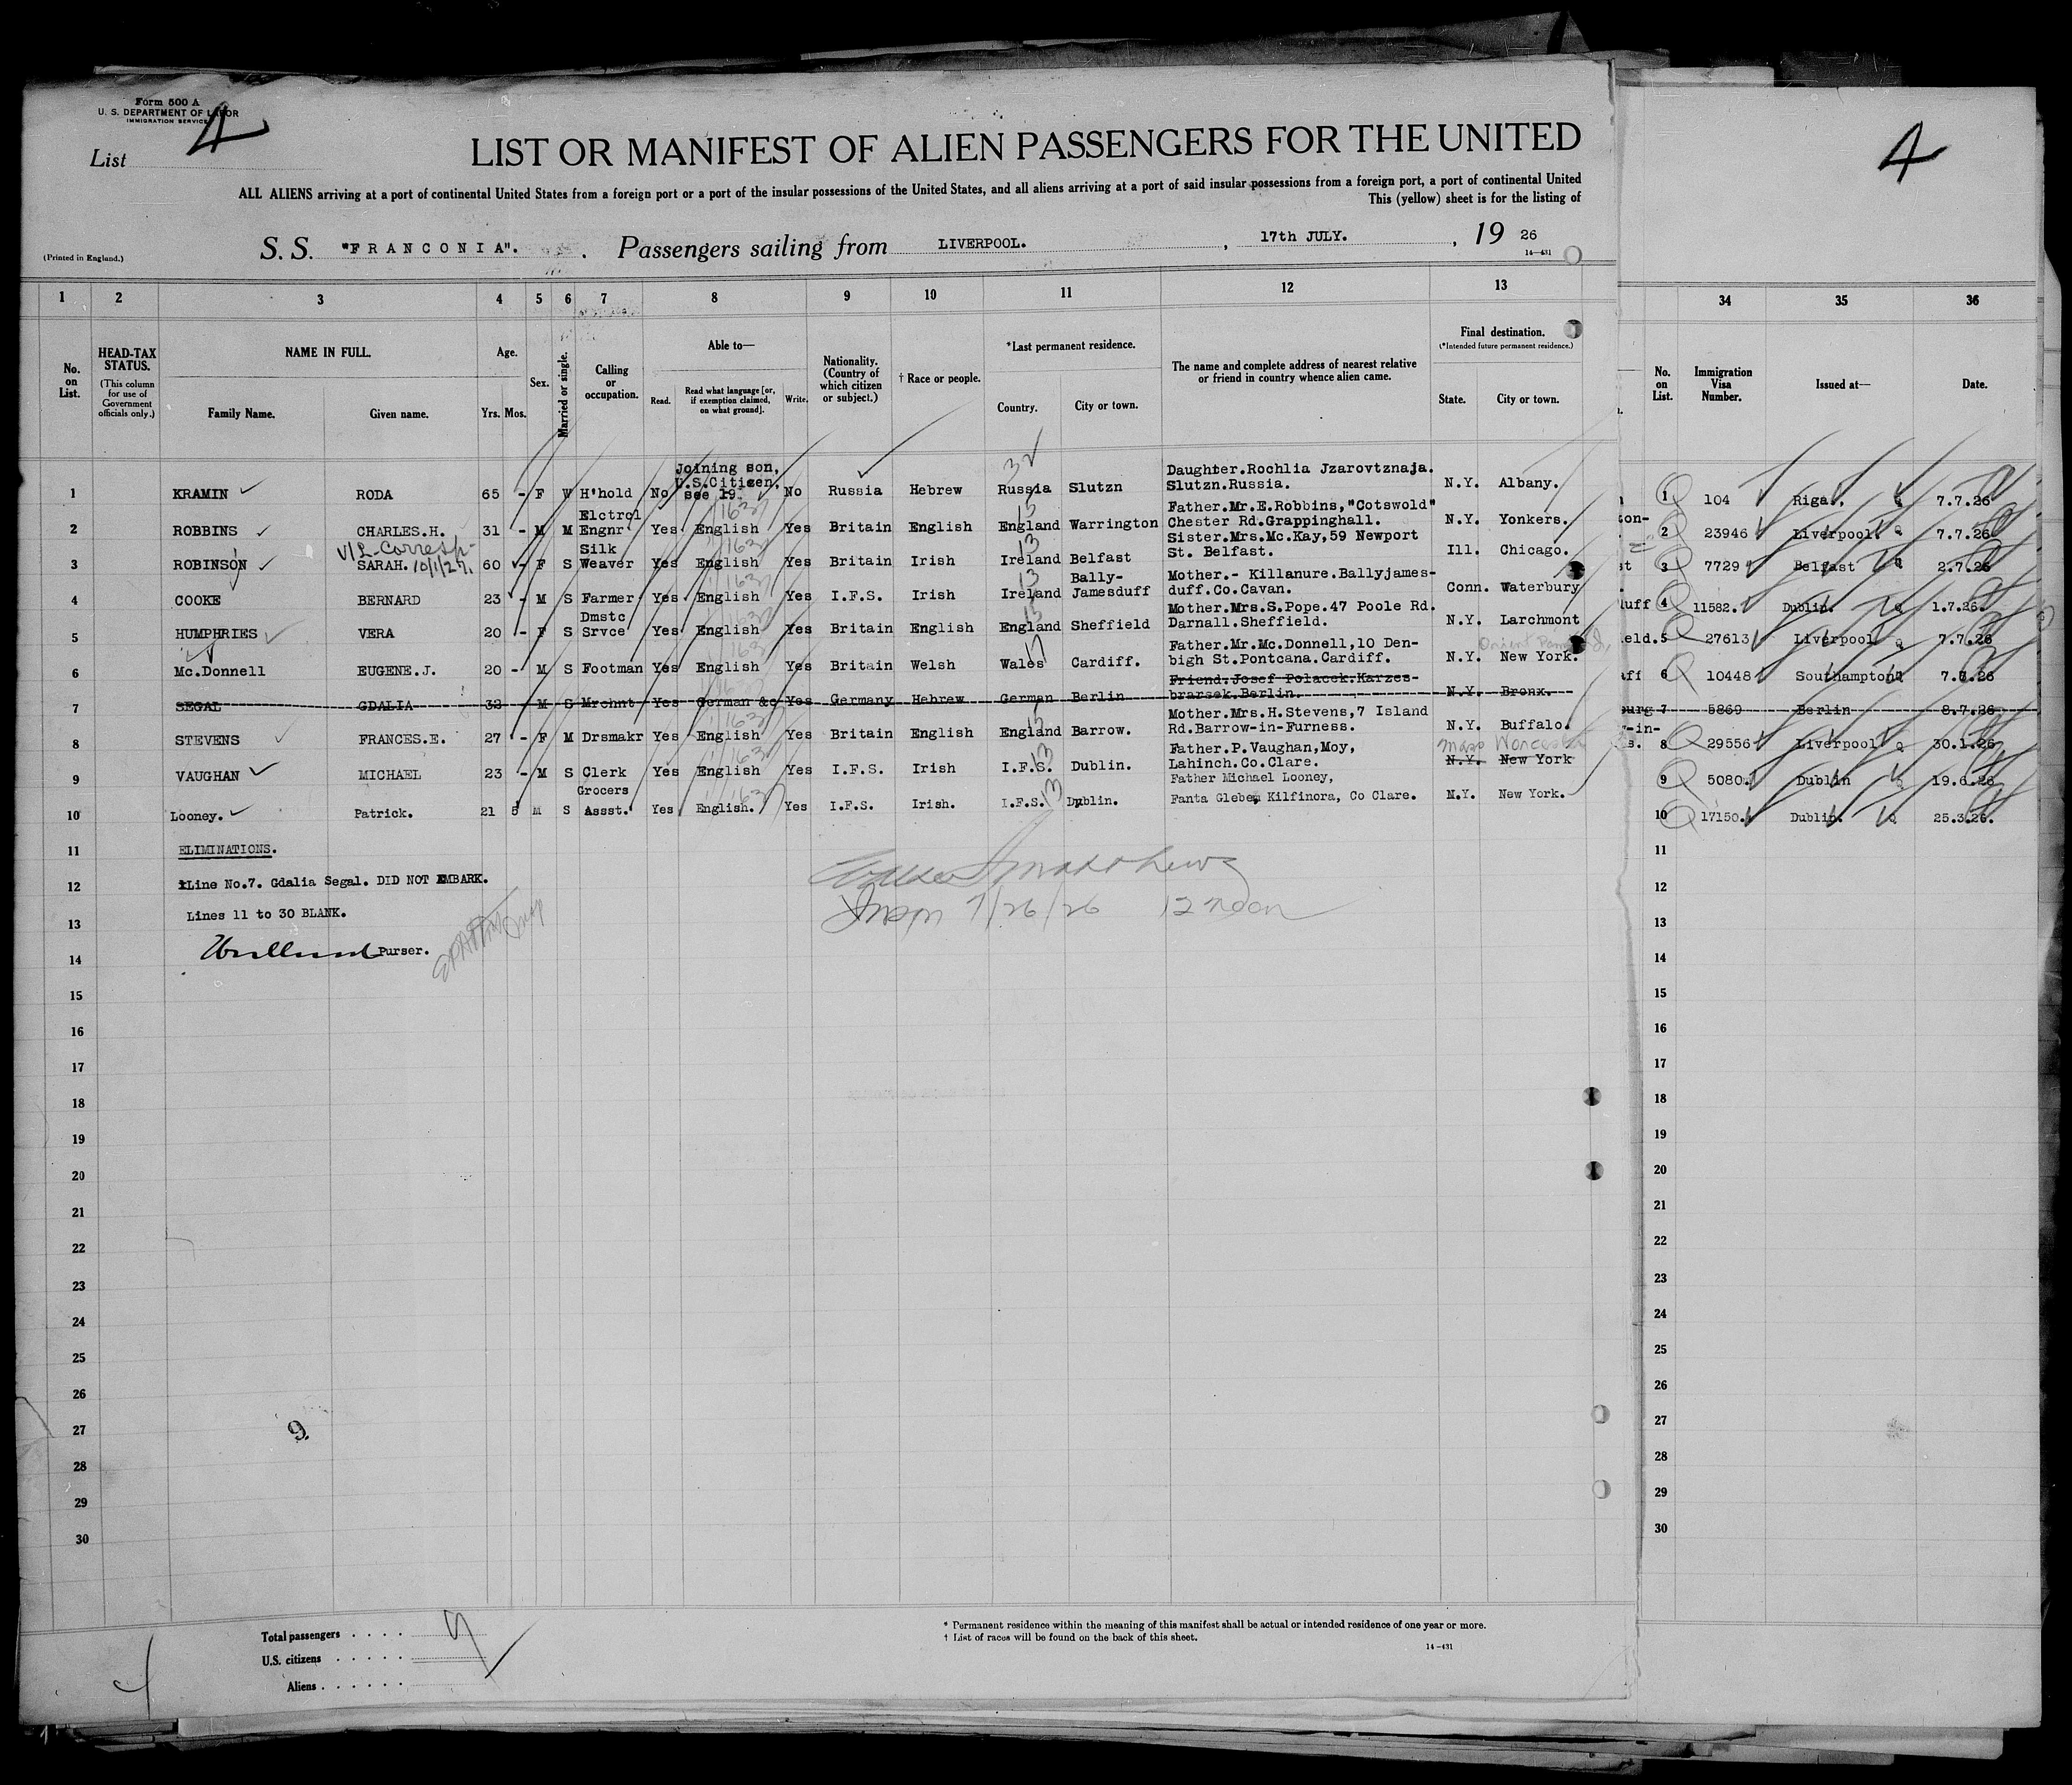 Form 500 A
U. S. DEPARTMENT OF LABOR
IMMIGRATION SERVICE
List 4
LIST OR MANIFEST OF ALIEN PASSENGERS FOR THE UNITED
ALL ALIENS arriving at a port of continental United States from a foreign port or a port of the insular possessions of the United States, and all aliens arriving at a port of said insular possessions from a foreign port, a port of continental United
This (yellow) sheet is for the listing of
(Printed in England.)
S. S. "FRANCONIA". Passengers sailing from LIVERPOOL. , 17th JULY. , 19 26
14—431
4
1 2 3 4 5 6 7 8 9 10 11 12 13 34 35 36
No. on List.
HEAD-TAX STATUS.
(This column for use of Government officials only.)
NAME IN FULL.
Family Name. Given name.
Age.
Yrs. Mos.
Sex.
Married or single.
Calling or occupation.
Able to—
Read. Read what language [or, if exemption claimed, on what ground]. Write.
Nationality. (Country of which citizen or subject.)
† Race or people.
*Last permanent residence.
Country. City or town.
The name and complete address of nearest relative or friend in country whence alien came.
Final destination.
(*Intended future permanent residence.)
State. City or town.
No. on List.
Immigration Visa Number.
Issued at—
Date.
1 KRAMIN RODA 65 - F W H'hold No Joining son, U.S.Citizen, see 19. No Russia Hebrew Russia Slutzn Daughter.Rochlia Jzarovtznaja. Slutzn.Russia. N.Y. Albany. 1 104 Riga. 7.7.26
2 ROBBINS CHARLES.H. 31 - M M Elctrcl Engnr Yes English Yes Britain English England Warrington Father.Mr.E.Robbins,"Cotswold" Chester Rd.Grappinghall. N.Y. Yonkers. 2 23946 Liverpool. 7.7.26
V/L-Corresp- 10/1/27.
3 ROBINSON SARAH. 60 - F S Silk Weaver Yes English Yes Britain Irish Ireland Belfast Sister.Mrs.Mc.Kay,59 Newport St. Belfast. Ill. Chicago. 3 7729 Belfast 2.7.26
4 COOKE BERNARD 23 - M S Farmer Yes English Yes I.F.S. Irish Ireland Bally-Jamesduff Mother.- Killanure.Ballyjames-duff.Co.Cavan. Conn. Waterbury 4 11582. Dublin. 1.7.26.
5 HUMPHRIES VERA 20 - F S Dmstc Srvce Yes English Yes Britain English England Sheffield Mother.Mrs.S.Pope.47 Poole Rd. Darnall.Sheffield. N.Y. Larchmont 5 27613 Liverpool 7.7.26
6 Mc.Donnell EUGENE.J. 20 - M S Footman Yes English Yes Britain Welsh Wales Cardiff. Father.Mr.Mc.Donnell,10 Den-bigh St.Pontcana.Cardiff. N.Y. New York. 6 10448 Southampton 7.7.26
7 SEGAL GDALIA 32 - M S Mrchnt Yes German &c Yes Germany Hebrew German Berlin Friend.Josef Polacek.Karzes-brarsek.Berlin. N.Y. Bronx. 7 5869 Berlin 8.7.26
8 STEVENS FRANCES.E. 27 - F M Drsmakr Yes English Yes Britain English England Barrow. Mother.Mrs.H.Stevens,7 Island Rd.Barrow-in-Furness. N.Y. Buffalo. 8 29556 Liverpool 30.1.26
Mass Worcester
9 VAUGHAN MICHAEL 23 - M S Clerk Yes English Yes I.F.S. Irish I.F.S. Dublin. Father.P.Vaughan,Moy, Lahinch.Co.Clare. N.Y. New York 9 5080. Dublin 19.6.26
10 Looney. Patrick. 21 5 M S Grocers Assst. Yes English. Yes I.F.S. Irish. I.F.S. Dublin. Father Michael Looney, Fanta Glebe, Kilfinora, Co Clare. N.Y. New York. 10 17150. Dublin. 25.3.26.
11 ELIMINATIONS. 11
12 Line No.7. Gdalia Segal. DID NOT EMBARK. 12
13 Lines 11 to 30 BLANK. 13
Insp 7/26/26 12 noon
14 Purser. 14
15 15
16 16
17 17
18 18
19 19
20 20
21 21
22 22
23 23
24 24
25 25
26 26
27 9. 27
28 28
29 29
30 30
Total passengers . . . . 9
U.S. citizens . . . . .
Aliens . . . . . .
* Permanent residence within the meaning of this manifest shall be actual or intended residence of one year or more.
† List of races will be found on the back of this sheet.
14—431